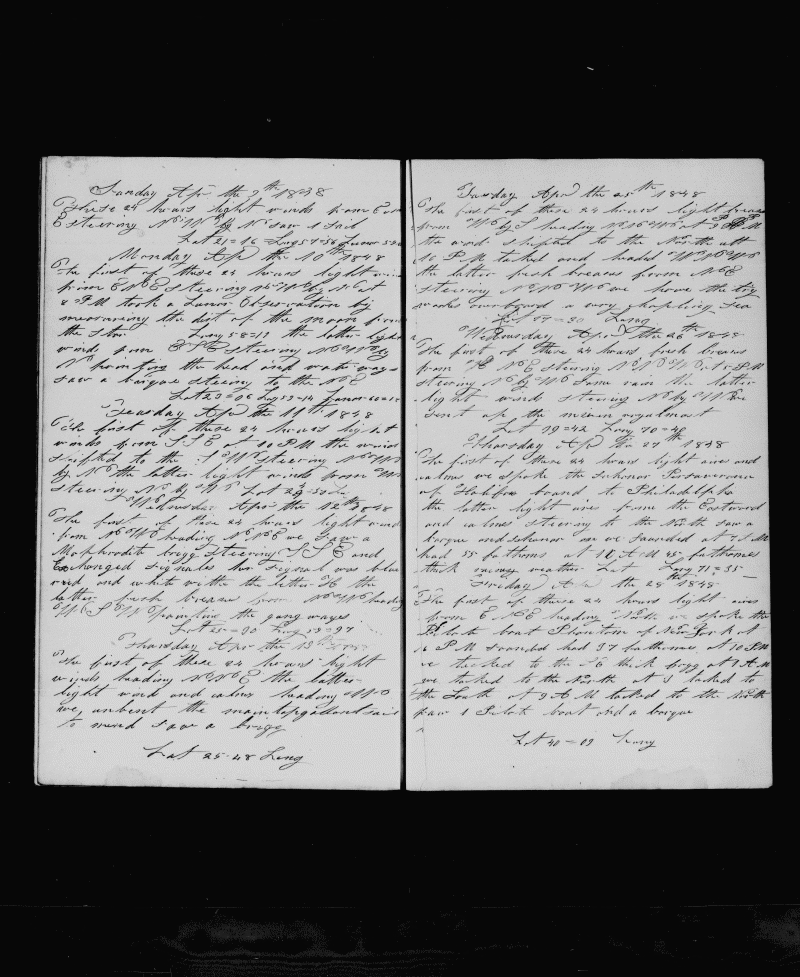 Sunday Apr the 9th 1848
These 24 hours light winds from E
E steering NW by N saw 1 sail
Lat 21=16 Long 57=56
Monday Apr the 10th 1848
The first of these 24 hours light
from ENE steering NW by N at
8 PM took a Lunar Observation by
measuring the dist of the moon from
the star Long 58=12 the latter light
winds from ESE steering NW by
N painting the head and water ways
saw a barque steering to the NE
Lat 23=06 Long 59=14
Teusday Apr the 11th 1848
The first of these 24 hours light
winds from SSE at 10 PM the wind
shifted to the SW steering NW
by N the latter light winds from W
steering N by W Lat 24=53
Wednesday Apr the 12th 1848
The first of these 24 hours light wind
from NW heading NNE we saw a
Mophrodite brigg steering SSE and
Exchanged signales her signal was blue
red and white with the letter H the
latter fresh breeses from NW heading
WSW painting the gang ways
Lat 25=20 Long 59=27
Thursday Apr the 13th 1848
The first of these 24 hours light
winds heading NNE the latter
light wind and calms heading W
we unbent the maintopgallantsail
to mend saw a brigg
Lat 25-48 Long
Tuesday Apr the 25th 1848
The first of these 24 hours light breeses
from W by S heading at 9 PM
the wind shifted to the North att
10 PM tacked and headed WNW
the latter fresh breases form NE
steering NWW we hove the try
works overboard a very chopling sea
Lat 37=30 Long
Wednusday Apr the 26th 1848
The first of these 24 hours fresh breeses
from NE steering NNW at 5 PM
steering N by W Some rain the latter
light winds steering N by W we
sent up the mizen royalmast
Lat 39=42 Long 70=40
Thorsday Apr the 27th 1848
The first of these 24 hours light aires and
calmes we spoke the Schonor Perseverance
of Halifax bound to Philadelpha
the latter light aires from the Eastward
and calmes steering to the North saw a
barque and schonor we sounded at 7 PM
had 55 fathoms at 10 AM 45 fathomes
thick rainy weather Lat Long 71=55
Friday Apr the 28th 1848
The first of these 24 hours light aires
from ENE heading North we spoke the
Pilote boat Phantom of New York At
PM sounded had 37 fathomes at 10 PM
we tacked to the SE thick fogg at 1 AM
we tacked to the North at 5 tacked to
the South at 9 AM tacked to the North
saw 1 Pilote boat and a barque
Lat 40=09 Long